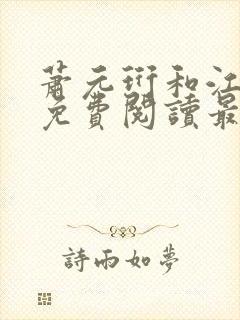 萧元衍和江
免費閱讀最
詩雨如夢